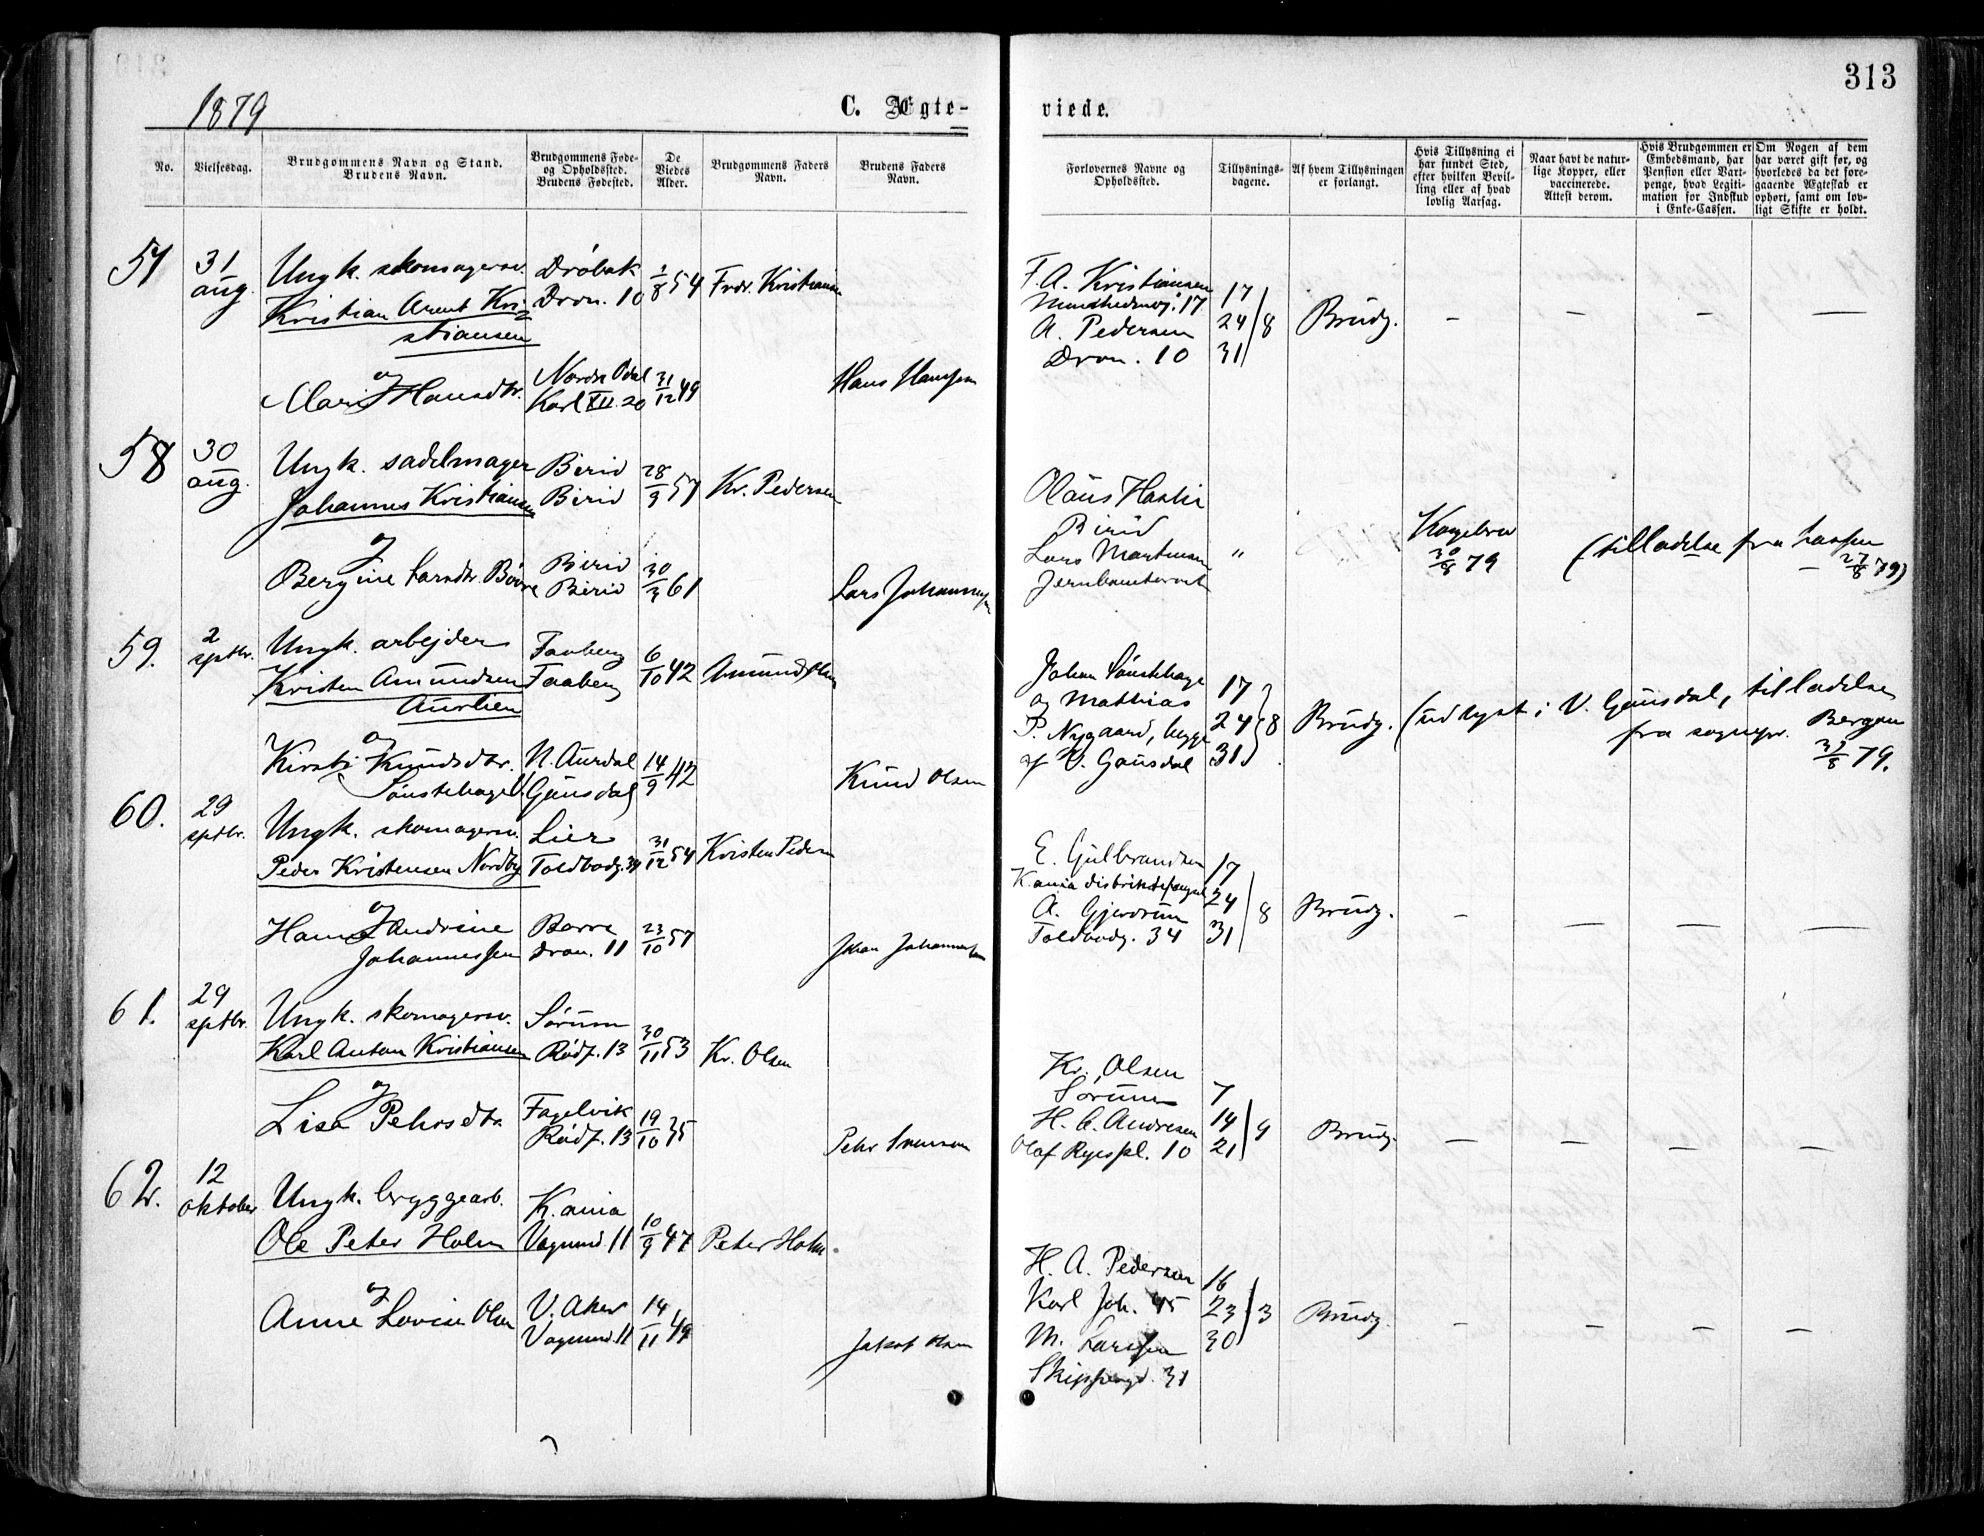 313
1879
C. Ægte-
viede.
No.
Vielsesdag.
Brudgommens Navn og Stand.
Brudens Navn.
Brudgommens Føde-
og Opholdssted.
Brudens Fødested.
De
Viedes
Alder.
Brudgommens Faders
Navn.
Brudens Faders
Navn.
Forlovernes Navne og
Opholdssted.
Tillysnings-
dagene.
Af hvem Tillysningen
er forlangt.
Hvis Tillysning ei
har fundet Sted,
efter hvilken Bevil-
ling eller af hvad
lovlig Aarsag.
Naar havt de natur-
lige Kopper, eller
vaccinerede.
Attest derom.
Hvis Brudgommen er
Embedsmand, har
Pension eller Vart-
penge, hvad Legiti-
mation for Indskud
i Enke-Cassen.
Om Nogen af dem
har været gift før, og
hvorledes da det fore-
gaaende Ægteskab er
ophørt, samt om lov-
ligt Skifte er holdt.
57
31
aug.
Ungk. skomagersv.
Kristian Arent Kri-
stiansen
og
Mari Hansdtr.
Drøbak
Dron. 10
Nordre Odal
Karl XII. 20
1/8 54
31/12 49
Fredr. Kristiansen
Hans Hansen
F. A. Kristiansen
17
A. Pedersen
Dron. 10
17
24
31
8
Brudg.
— — — —
58
30
aug.
Ungk. sadelmager
Johannes Kristiansen
og
Bergine Larsdtr. Børre
Birid
Birid
Birid
Birid
28/9 57
30/3 61
Kr. Pedersen
Lars Johannesen
Olaus
Birid
Lars Martinsen
Jernbanetorvet
"
Kongebrev
30/8 79
(tilladelse fra
27/8 79)
59.
2
sptbr.
Ungk. arbejder
Kristen Amundsen
Aurlien
og
Kirsti Knudsdtr.
Sønstehagen
Faaberg
Faaberg
N. Aurdal
V. Gausdal
6/10 42
14/9 42
Amund Olsen
Knud Olsen
Johan Sønstehage
og Mathias
P. Nygaard, begge
af V. Gausdal
17
24
31
8
Brudg.
(udlyst i V. Gausdal, tilladelse
fra sognepr. Bergan
31/8 79.
60.
29
sptbr.
Ungk. skomagersv.
Peder Kristensen Nordby
og
Hanna Andrine
Johannessen
Lier
Toldbodg. 34
Borre
Dron. 11
31/12 54
23/10 57
Kristen Pedersen
Johan Johannessen
E. Gulbrandsen
K.ania distriktsfængsel
A. Gjerdrum
Toldbodg. 34
17
24
31
8
Brudg.
— — — —
61.
29
sptbr.
Ungk. skomagersv.
Karl Anton Kristiansen
og
Lisa Pehrsdtr.
Sørum
Rødf. 13
Fagelvik
Rødf. 13
30/11 53
19/10 35
Kr. Olsen
Peter Svenson
Kr. Olsen
Sørum
H. C. Andresen
Olaf Ryespl. 10
7
14
21
9
Brudg.
— — — —
62.
12
oktober
Ungk. bryggearb.
Ole Peter Holm
og
Anne Lovise Olsen
K.ania
Vognmd. 11
V. Aker
Vognmd. 11
10/9 47
14/11 49
Peter Holm.
Jakob Olsen
H. A. Pedersen
Karl Joh. 45
M. Larsen
Skippergd. 31
16
23
30
3
Brudg.
— — — —